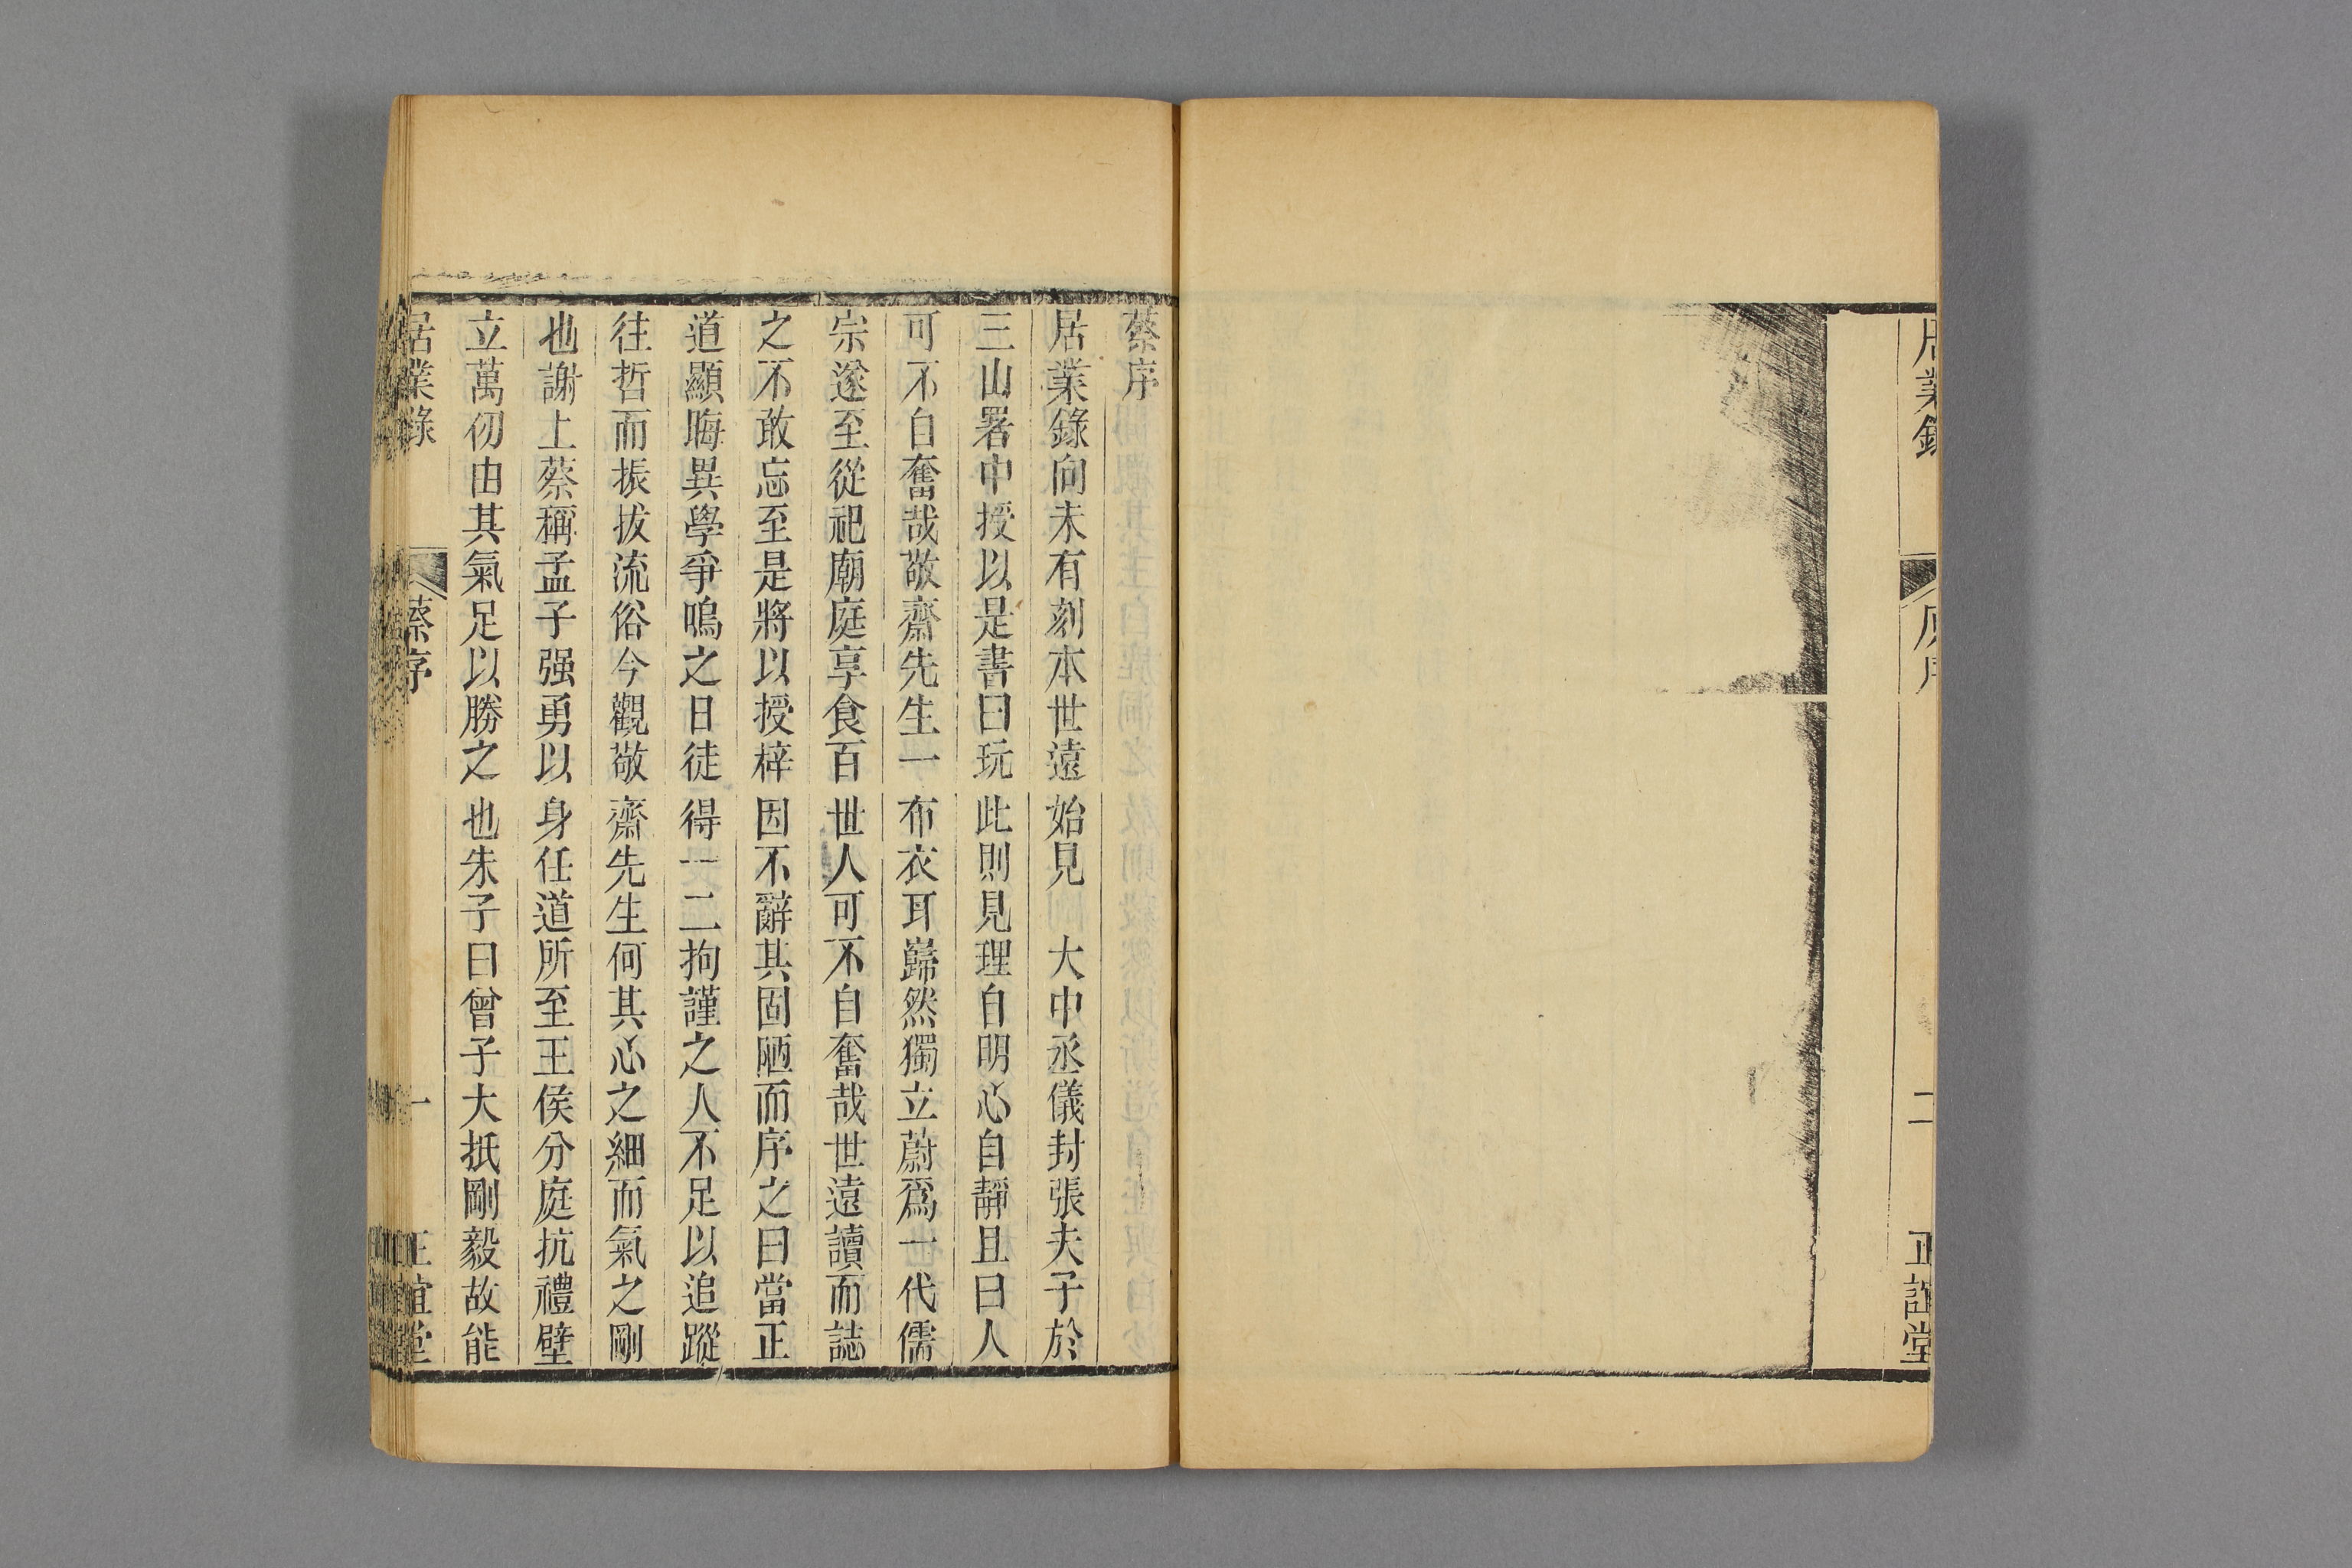 居業錄
原序
二
正誼堂
蔡序
居業錄向未有刻本世遠始見 大中丞儀封張夫子於
三山署中授以是書曰玩此則見理自明心自靜且曰人
可不自奮哉敬齋先生一布衣耳巋然獨立蔚爲一代儒
宗遂至從祀廟庭享食百世人可不自奮哉世遠讀而誌
之不敢忘至是將以授梓因不辭其固陋而序之曰當正
道顯晦異學爭鳴之日徒得一二拘謹之人不足以追蹤
往哲而振拔流俗今觀敬齋先生何其心之細而氣之剛
也謝上蔡稱孟子强勇以身任道所至王侯分庭抗禮壁
立萬仞由其氣足以勝之也朱子曰曾子大抵剛毅故能
居業錄
蔡序
一
正誼堂